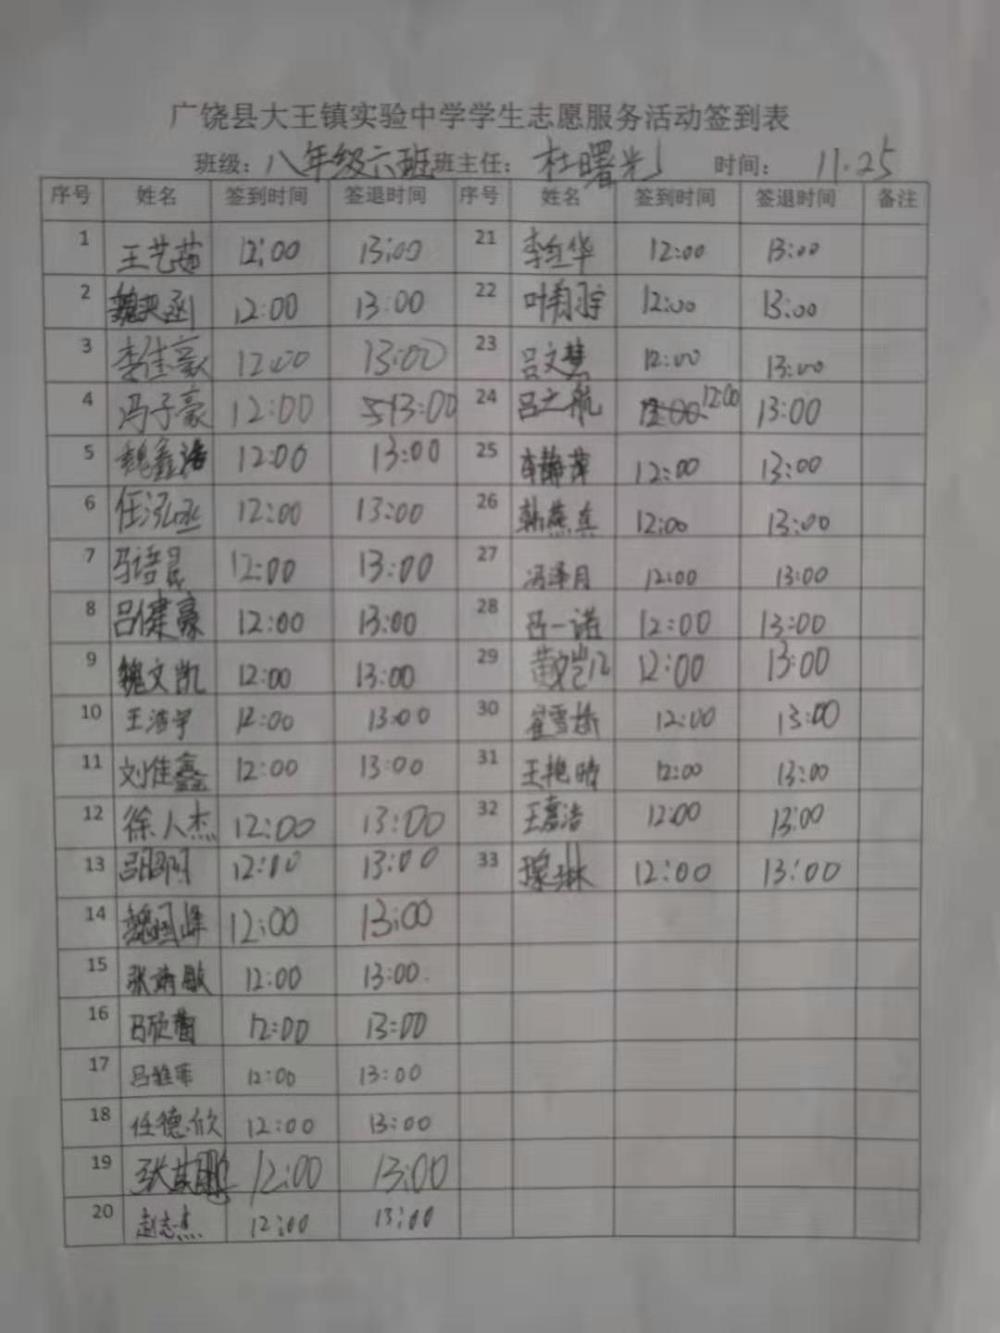 广饶县大王镇实验中学学生志愿服务活动签到表
班级：八年级六班 班主任：杜曙光 时间：11.25
序号 姓名 签到时间 签退时间 序号 姓名 签到时间 签退时间 备注
1 王艺茹 12:00 13:00 21 李红华 12:00 13:00
2 魏奕函 12:00 13:00 22 叶翔宇 12:00 13:00
3 李佳豪 12:00 13:00 23 吕文慧 12:00 13:00
4 冯子豪 12:00 13:00 24 吕之航 12:00 13:00
5 魏鑫浩 12:00 13:00 25 李静萍 12:00 13:00
6 任泓丞 12:00 13:00 26 韩燕兵 12:00 13:00
7 马语晨 12:00 13:00 27 冯泽月 12:00 13:00
8 吕健豪 12:00 13:00 28 吕一诺 12:00 13:00
9 魏文凯 12:00 13:00 29 12:00 13:00
10 王浩宇 12:00 13:00 30 崔雪娇 12:00 13:00
11 刘佳鑫 12:00 13:00 31 王艳晴 12:00 13:00
12 徐人杰 12:00 13:00 32 王嘉浩 12:00 13:00
13 12:00 13:00 33 12:00 13:00
14 魏国峰 12:00 13:00
15 张靖敏 12:00 13:00
16 吕欣蔚 12:00 13:00
17 吕雅菲 12:00 13:00
18 任德欣 12:00 13:00
19 12:00 13:00
20 赵志杰 12:00 13:00